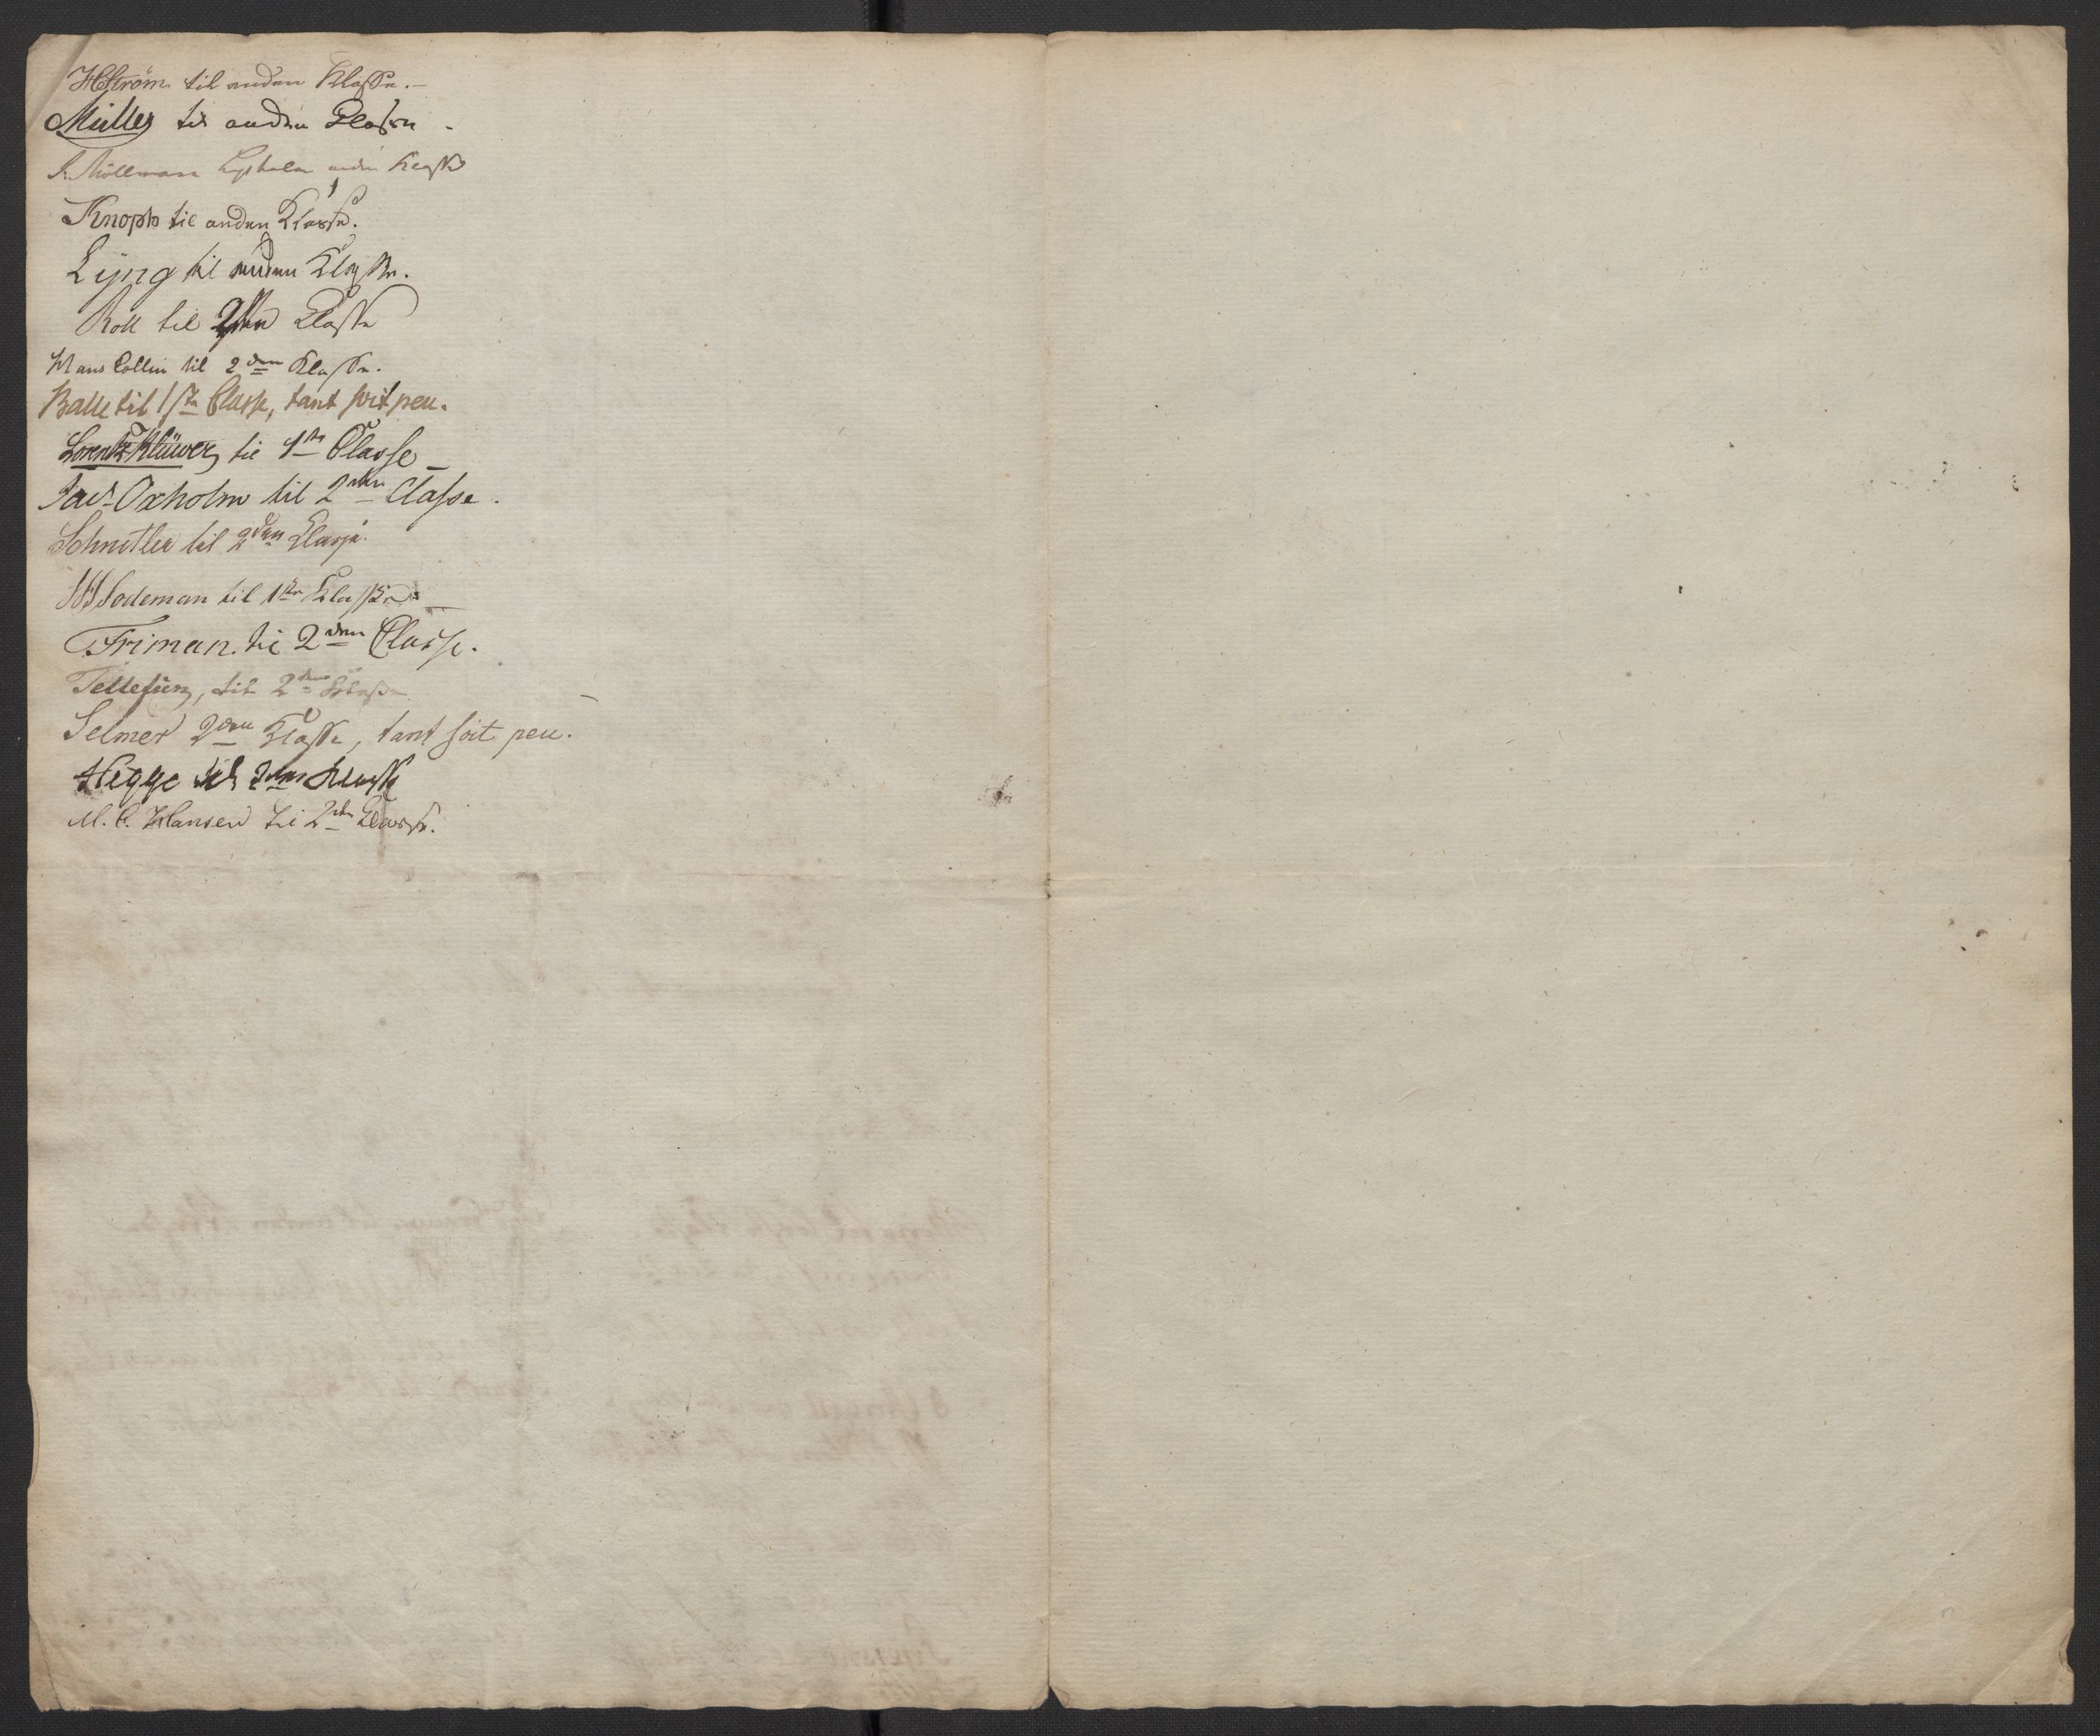 HStröm til anden Klasse.—
Müller til anden Classe -
F. Möllmann Lysholm anden Klasse
Knoph til anden Klasse.
Lyng til anden Klasse.
Roll til 2den Classe
Hans Collin til 2den Klasse.
Balle til 1ste Classe, tant soit peu.
Lorentz Klüwer, til 1ste Classe
Jac. Oxholm til 2den Classe.
Schnitler til 2den Classe.
Lodeman til 1ste Klasse
Friman. til 2den Classe.
Tellefsen, til 2den Klasse
Selmer 2den Klasse, tant soit peu.
Hegge til 2den Klasse
M. C. Hansen til 2den Classe.